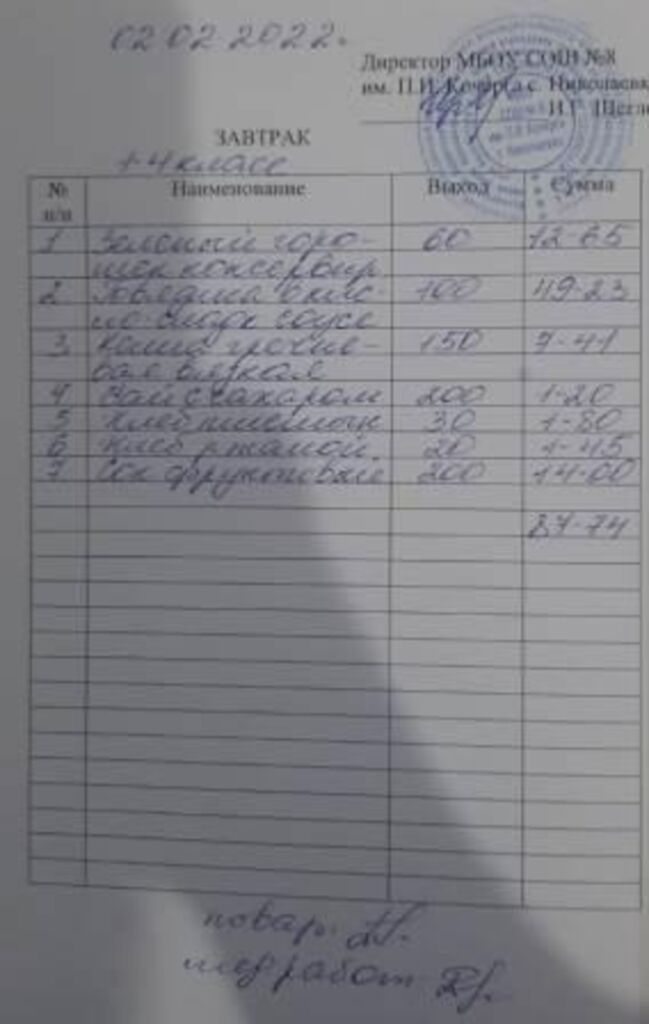 02 02 2022г.
Директор МБОУ СОШ №8
им. П.И. Кочерга с. Николаевка
И.Г. Щегл
ЗАВТРАК
1-4 класс
№ п/п Наименование Выход Сумма
1 Зеленый горо- 60 12-65
шек консервир
2 Говядина в кис- 100 49-23
ло-сладк соусе
3 Каша гречне- 150 7-41
вая вязкая
4 Чай с сахаром 200 1-20
5 Хлеб пшеничн 30 1-80
6 Хлеб ржаной 20 1-45
7 Сок фруктовый 200 14-00
87-74
повар:
медработ